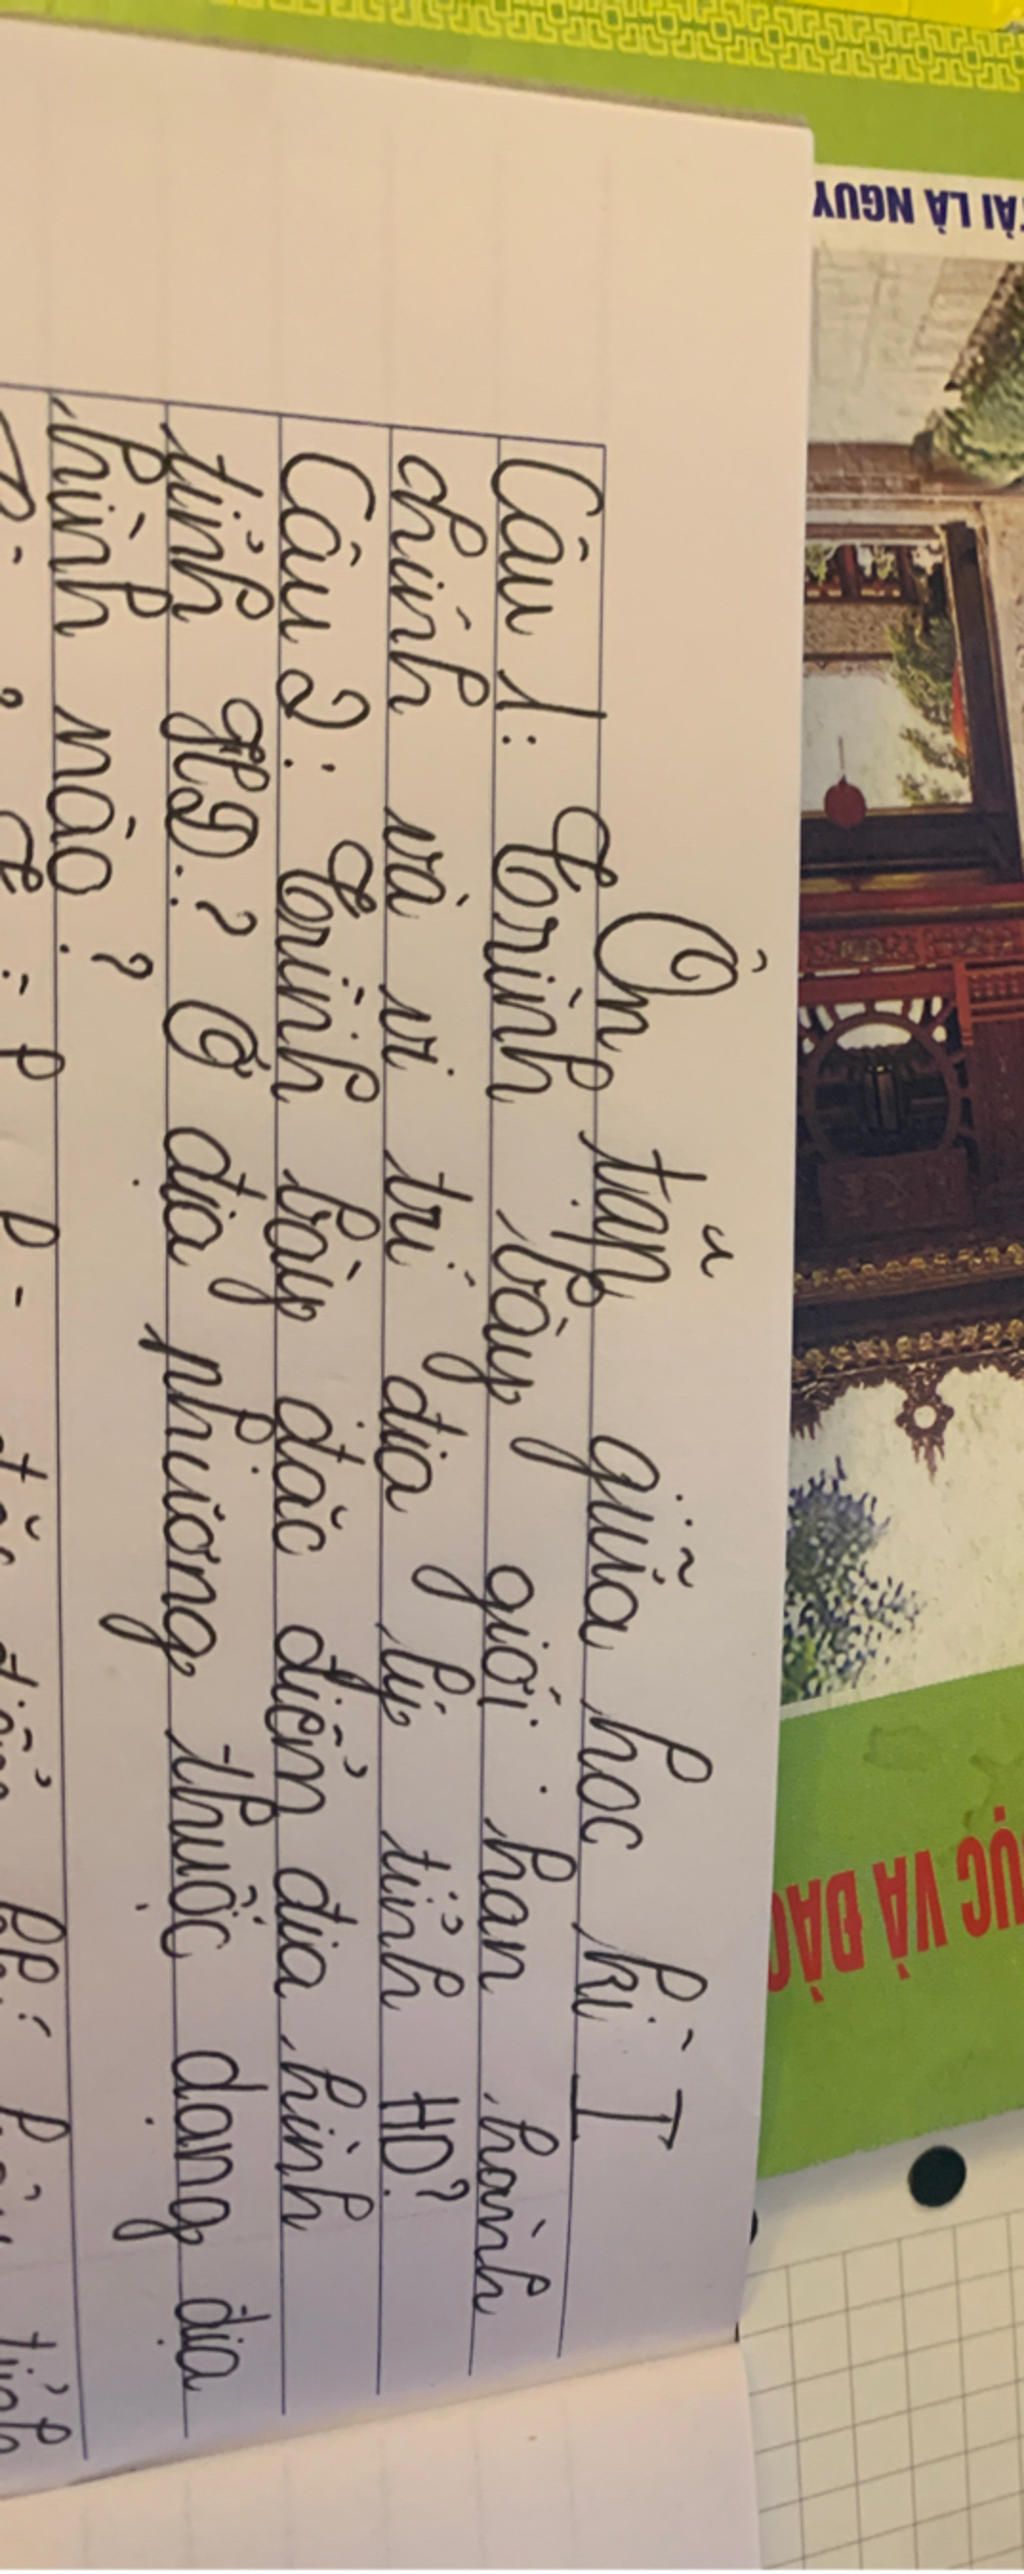 Ôn tập giữa học kì I
Câu 1: Trình bày giới hạn hành
chính và vị trí địa lý tỉnh HD?
Câu 2: Trình bày đặc điểm địa hình
tỉnh HD? Ở địa phương thuộc dạng địa
hình nào?
đặc điểm khí hậu tỉnh
TÀI LÀ NGUY
ỤC VÀ ĐÀO